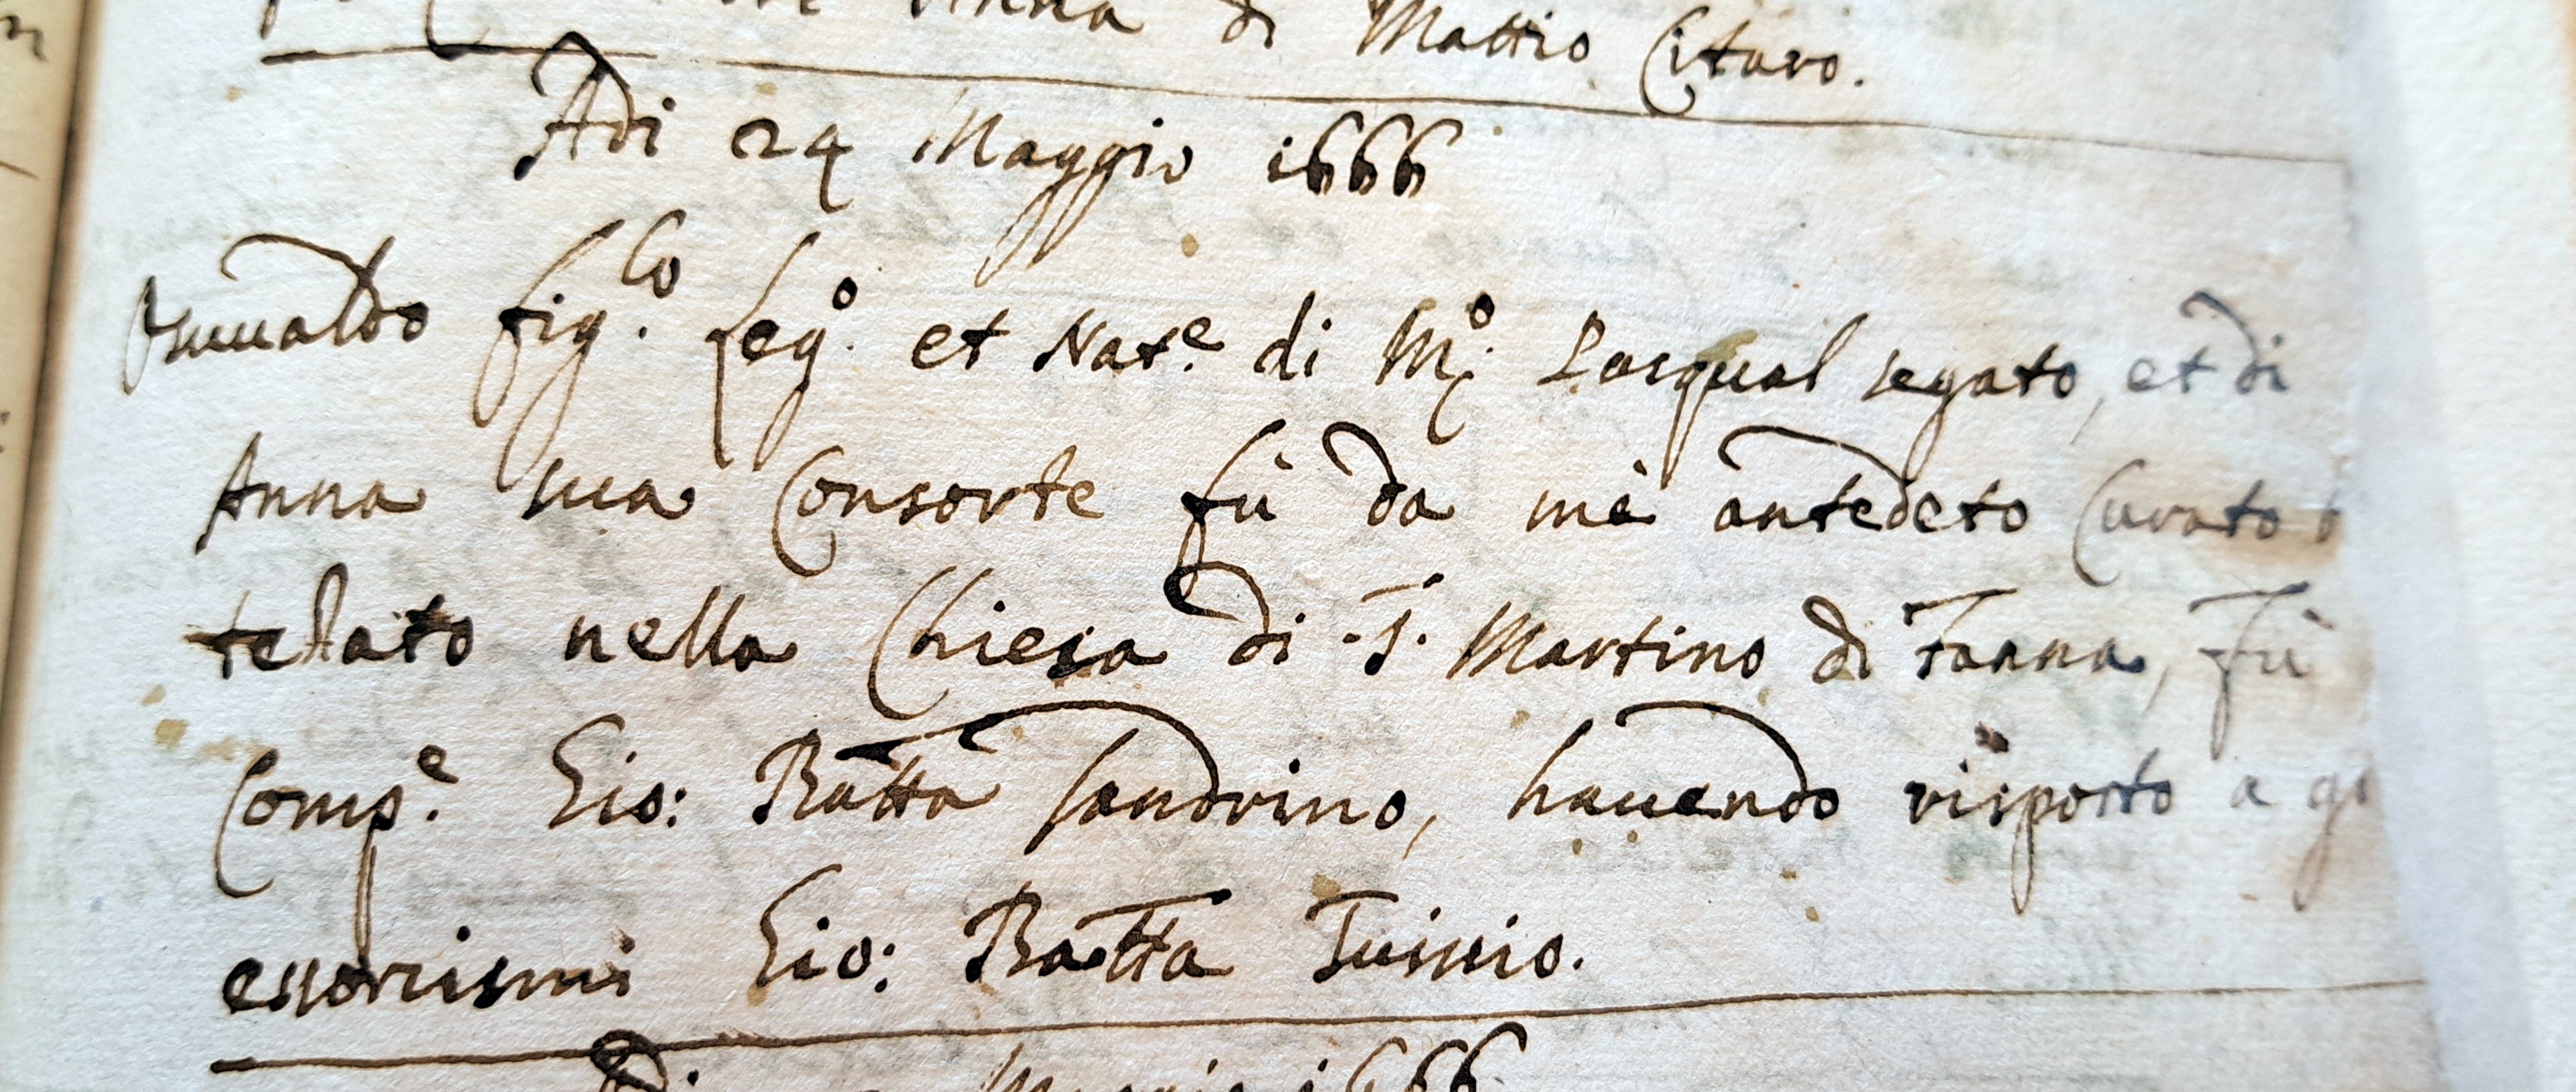 Anna di Mattio Citaro.
Adi 24 Maggio 1666
Osuualdo fig.lo Leg.o et Nat.e di M.o Pasqual segato, et di
Anna sua Consorte fù da mè antedeto Curato b
tezato nella Chiesa di S. Martino di Fanna, fù
Comp.e Gio: Batta Sandrino, hauendo risposto a gl
essorcismi Gio: Batta Tuissio.
Maggio 1666